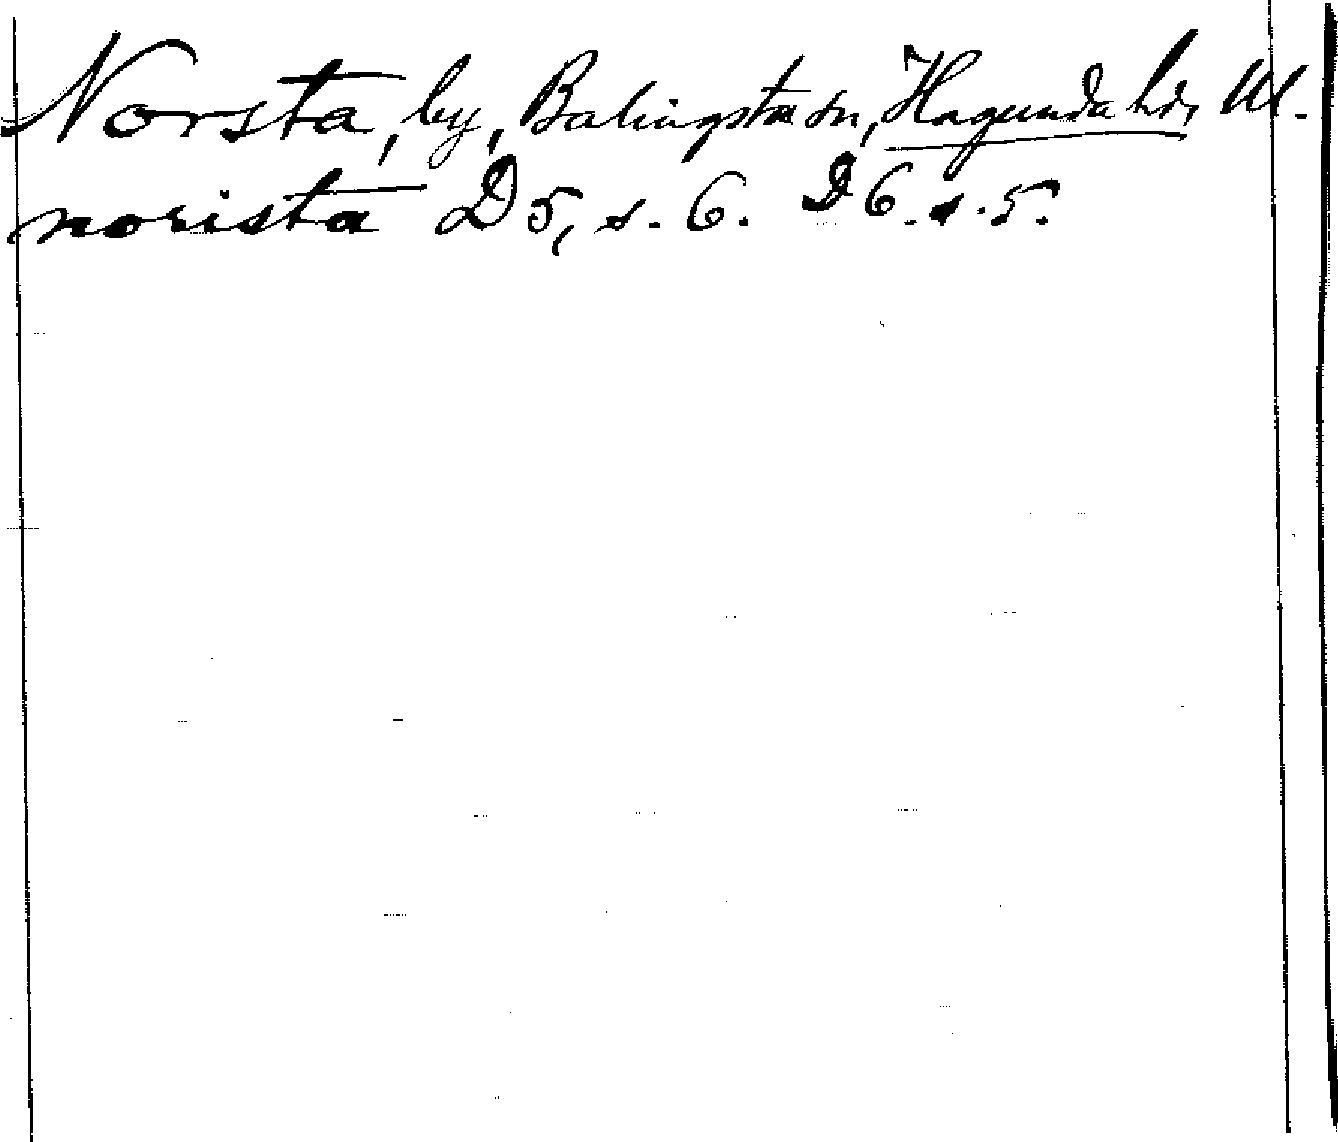 Norsta, by, Balingsta sn, Hagunda hd, Ul.
norista D5, s. 6. D6. s. 5.